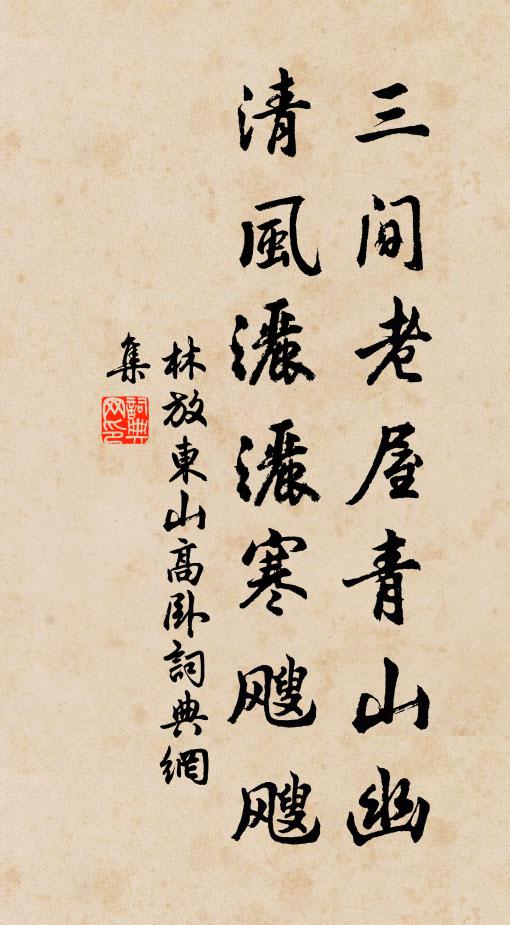 三間老屋青山幽
清風灑灑寒颼颼
林放東山高臥詞典網
集
詞典
網印